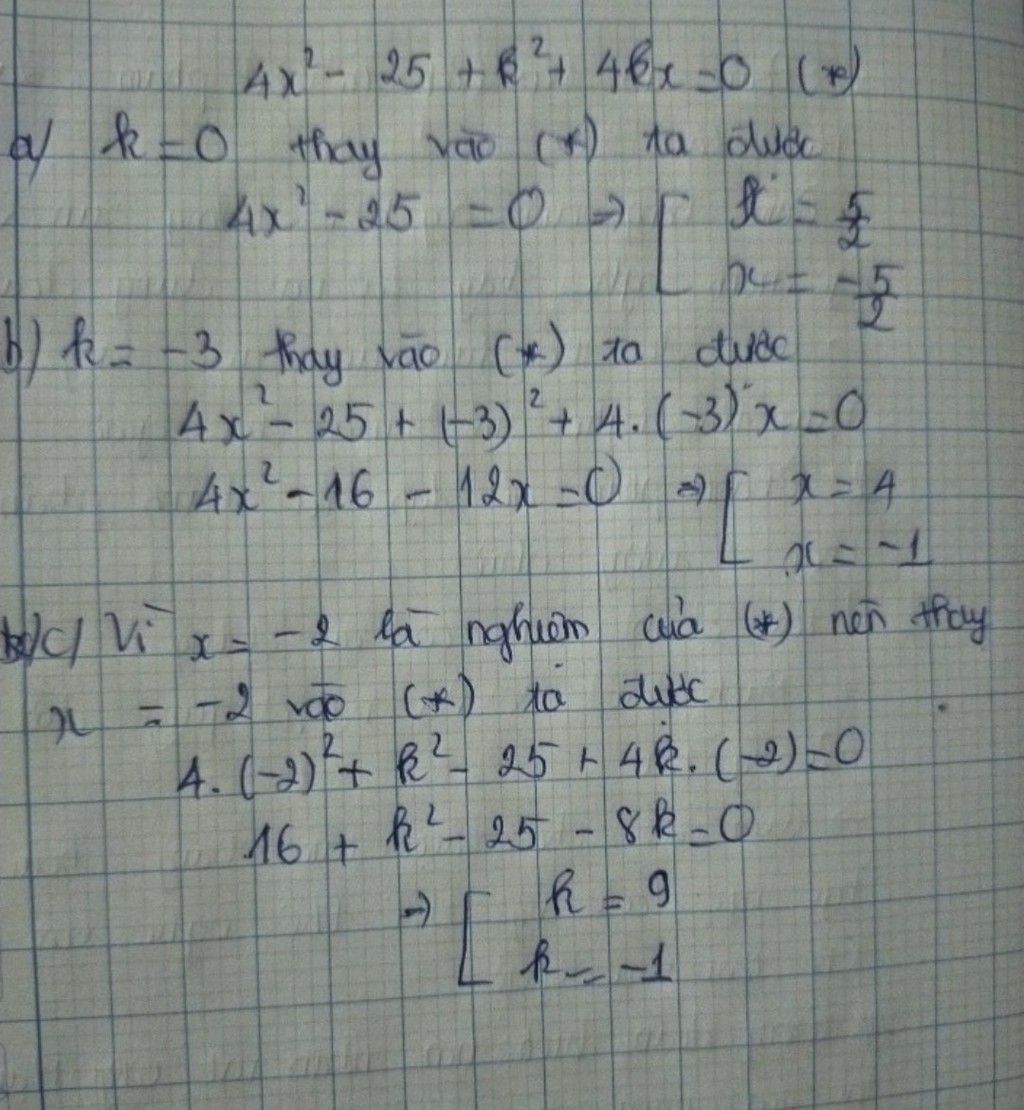 4x² - 25 + k² + 4kx = 0 (*)
a/ k = 0 thay vào (*) ta được
4x² - 25 = 0 => [ x = 5/2
x = -5/2
b) k = -3 thay vào (*) ta được
4x² - 25 + (-3)² + 4.(-3) x = 0
4x² - 16 - 12x = 0 => [ x = 4
x = -1
c/ Vì x = -2 là nghiệm của (*) nên thay
x = -2 vào (*) ta được
4.(-2)² + k² - 25 + 4k.(-2) = 0
16 + k² - 25 - 8k = 0
=> [ k = 9
k = -1